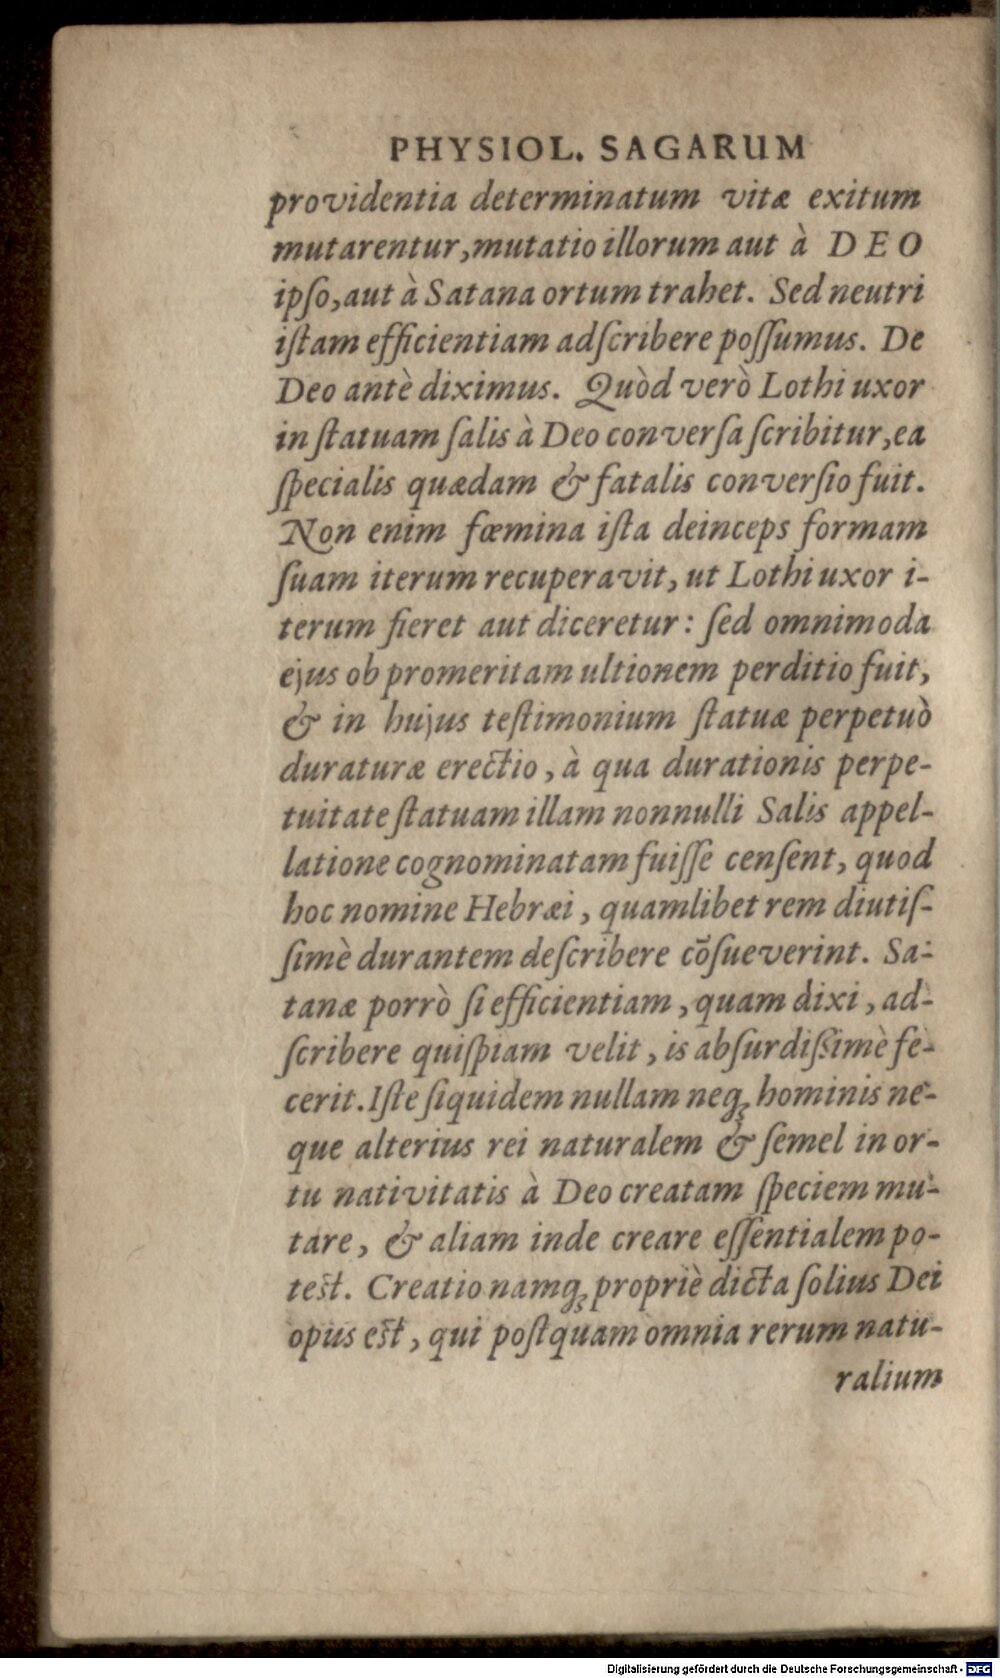 PHYSIOL. SAGARUM
providentia determinatum vitæ exitum
mutarentur, mutatio illorum aut à DEO
ipſo, aut à Satana ortum trahet. Sed neutri
iſtam efficientiam adſcribere poſſumus. De
Deo antè diximus. Quòd verò Lothi uxor
in ſtatuam ſalis à Deo converſa ſcribitur, ea
ſpecialis quædam & fatalis converſio fuit.
Non enim fœmina iſta deinceps formam
ſuam iterum recuperavit, ut Lothi uxor i-
terum fieret aut diceretur: ſed omnimoda
ejus ob promeritam ultionem perditio fuit,
& in hujus teſtimonium ſtatuæ perpetuò
duraturæ erectio, à qua durationis perpe-
tuitate ſtatuam illam nonnulli Salis appel-
latione cognominatam fuiſſe cenſent, quod
hoc nomine Hebræi, quamlibet rem diutiſ-
ſimè durantem deſcribere cōſueverint. Sa-
tanæ porrò ſi efficientiam, quam dixi, ad-
ſcribere quiſpiam velit, is abſurdißimè fe-
cerit. Iſte ſiquidem nullam neq; hominis ne-
que alterius rei naturalem & ſemel in or-
tu nativitatis à Deo creatam ſpeciem mu-
tare, & aliam inde creare eſſentialem po-
test. Creatio namq; propriè dicta ſolius Dei
opus est, qui poſtquam omnia rerum natu-
ralium
Digitalisierung gefördert durch die Deutsche Forschungsgemeinschaft - DFG